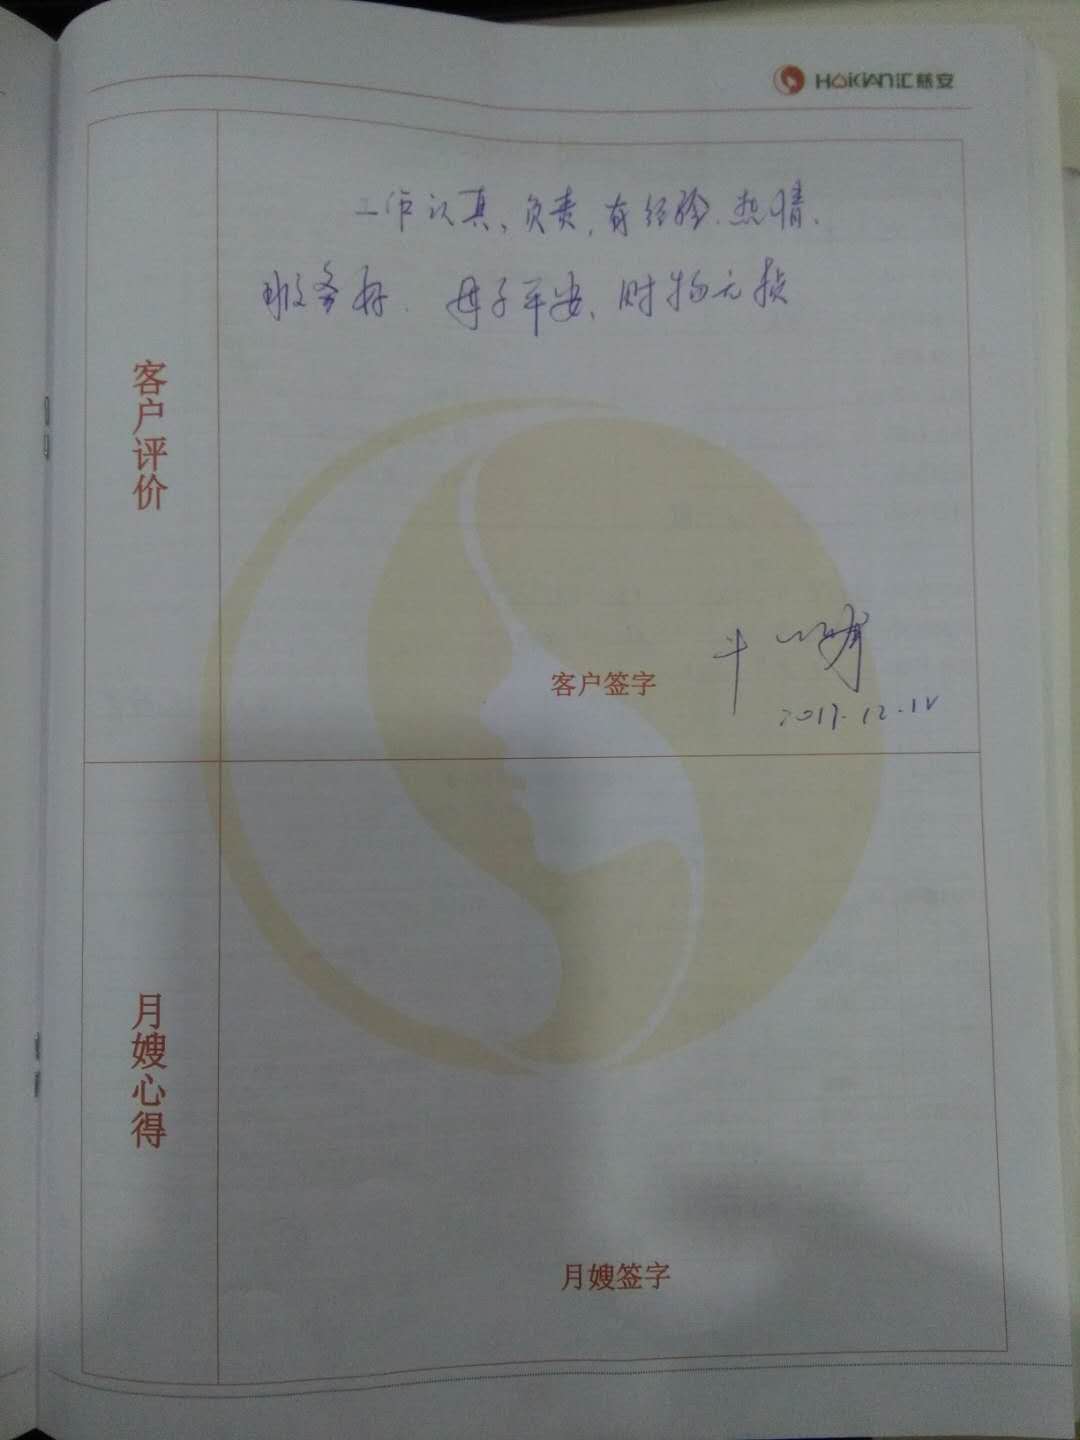 HAKIAN汇慈安
工作认真、负责,有经验.热情、
服务好. 母子平安、财物无损
客户评价
客户签字
2017.12.12
月嫂心得
月嫂签字